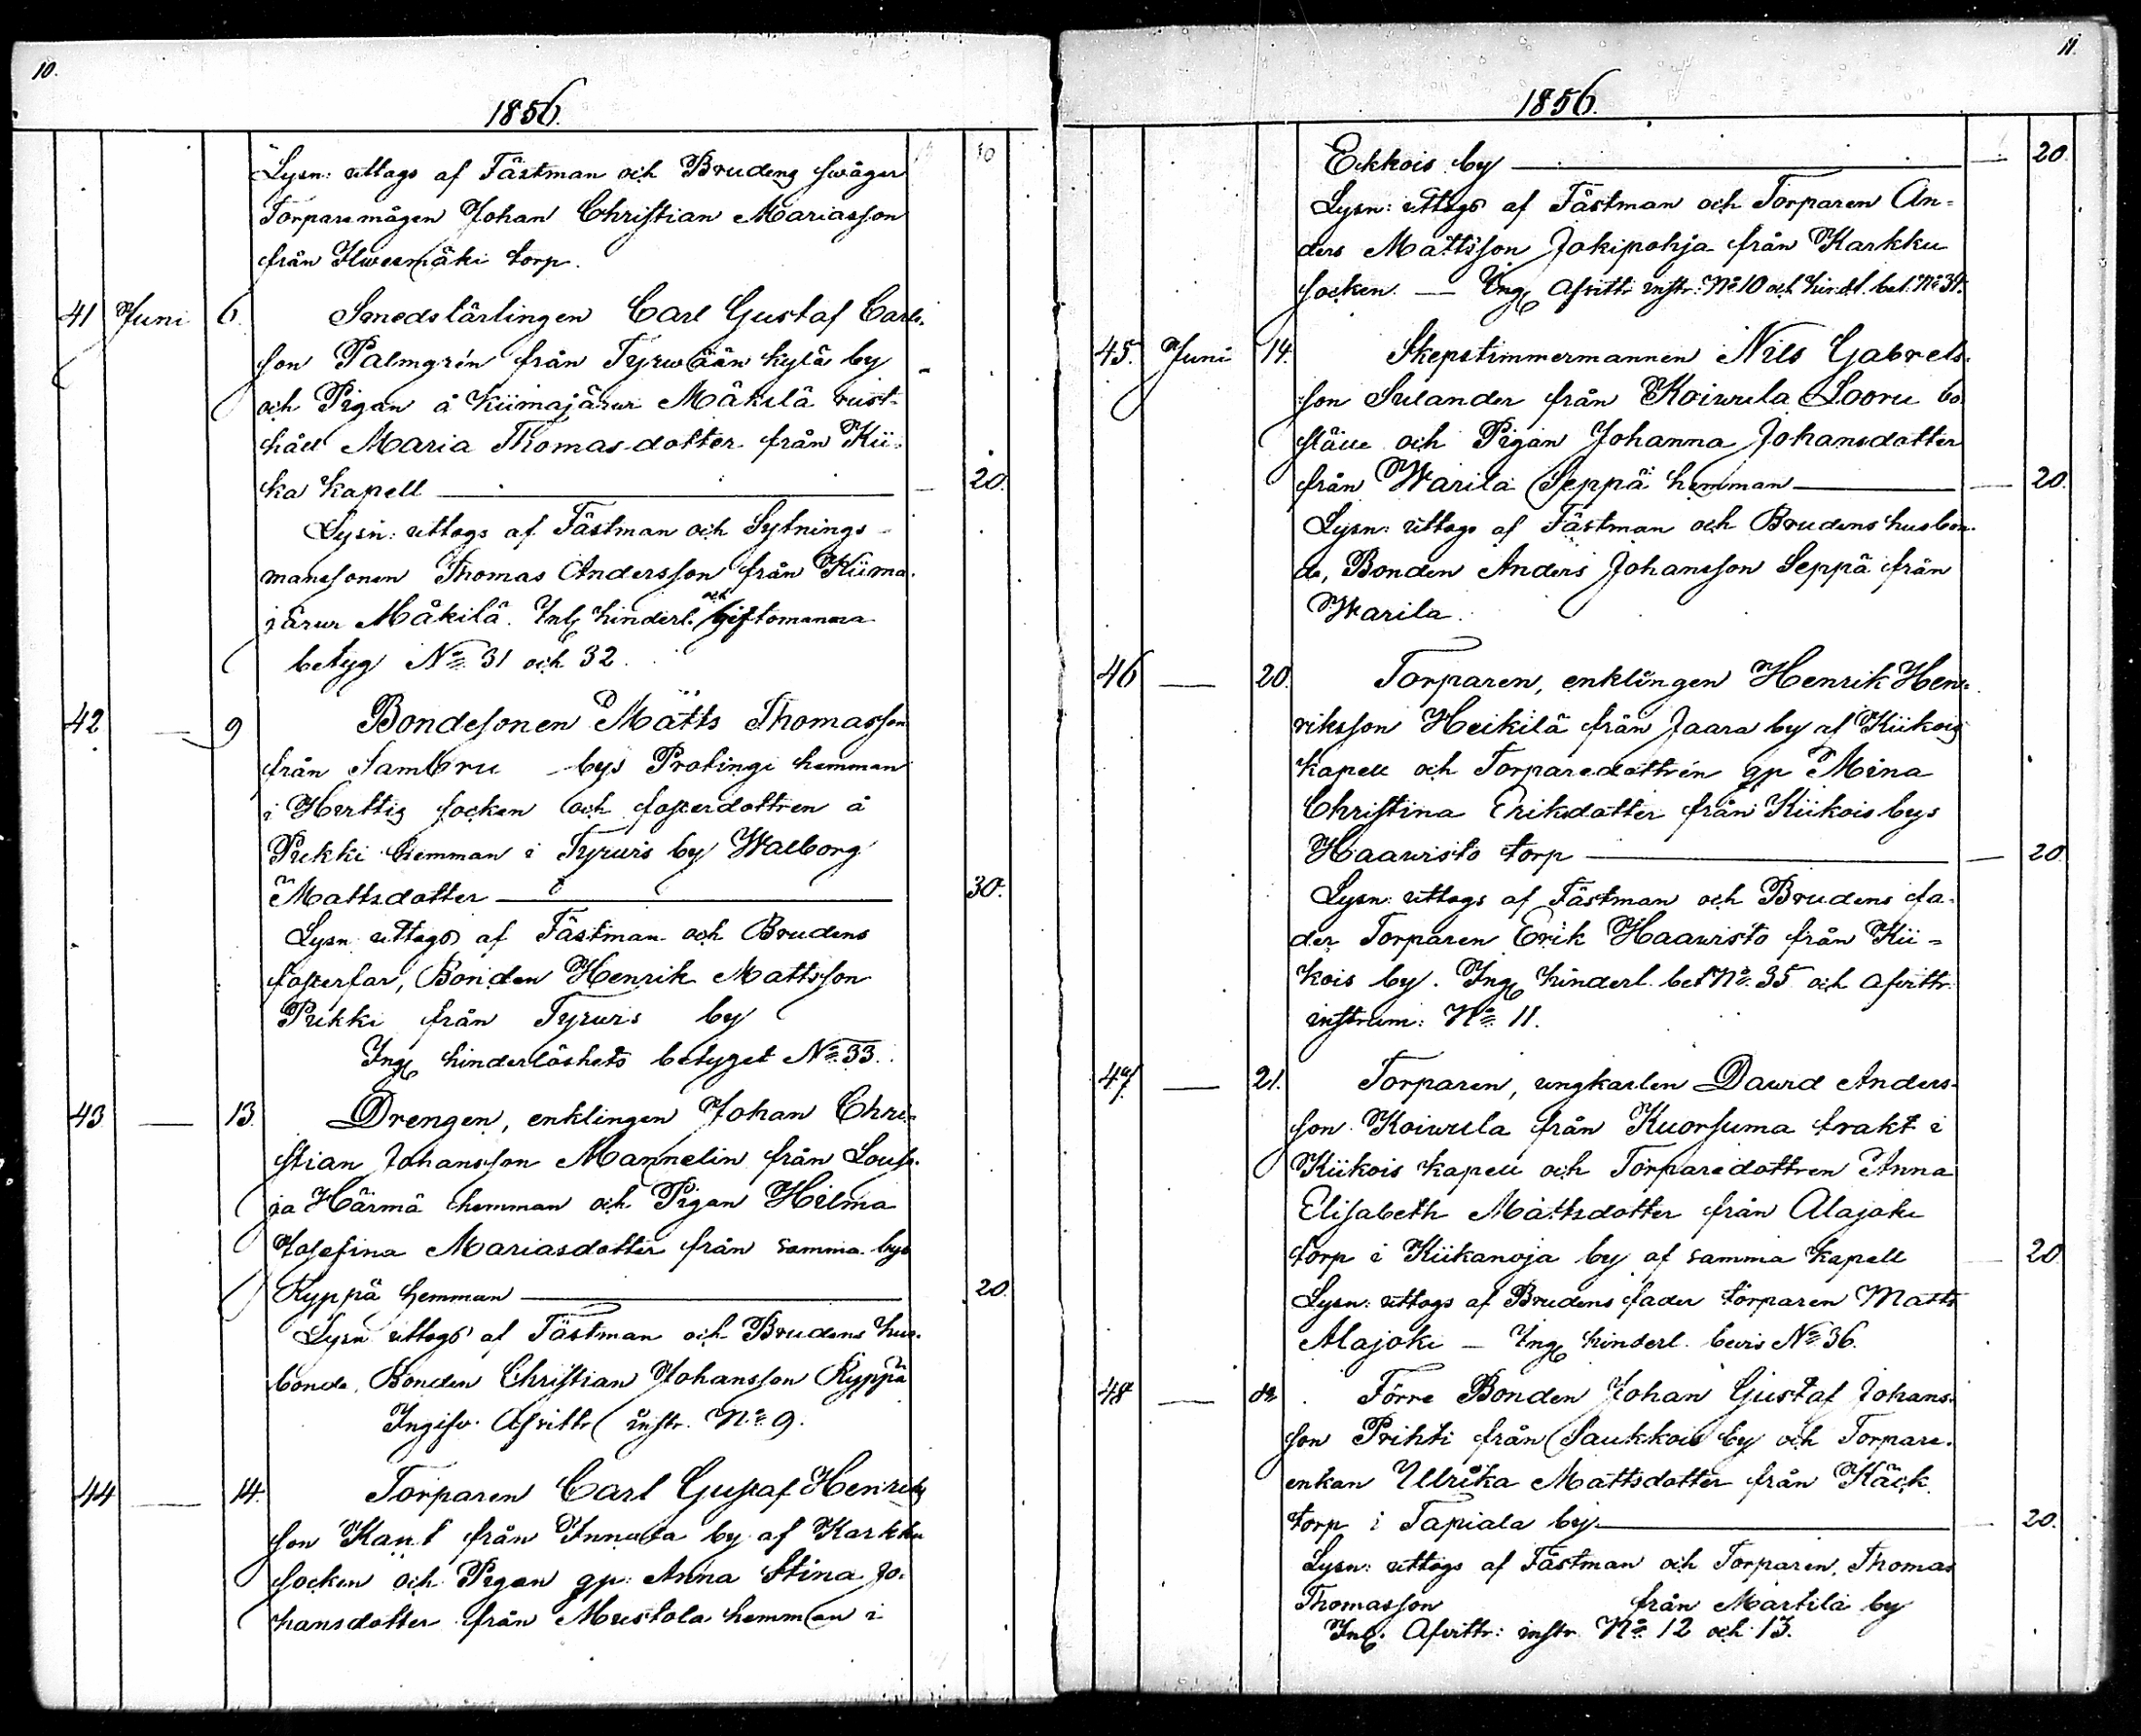 10.
1856.
Lysn: uttags af Fästman och Brudens swåger
Torparemågen Johan Christian Mariasson
från torp.
41 Juni 6. Smedslärlingen Carl Gustaf Carls-
son Palmgrén från Tyrwään kylä by
och Pigan å Kiimajärwi Mäkilä rust-
håll Maria Thomasdotter från Kii-
ka Kapell — 20.
Lysn: uttags af Fästman och Sytnings-
mansonen Thomas Andersson från Kiima-
järwi Mäkilä. Inlg hinderl. och Giftomanna
betyg No 31 och 32.
42 — 9 Bondesonen Matts Thomasson
från Sambru bys Prolingi hemman
i Hvittis socken och fosterdottren å
Pukki hemman i Tyrwis by Walborg
Mattsdotter — 30.
Lysn uttags af Fästman och Brudens
fosterfar, Bonden Henrik Mattsson
Pukki från Tyrwis by
Ing hinderlöshets betyget No 33.
43 — 13. Drengen, enklingen Johan Chri-
stian Johansson Mannelin från
ja Härmä hemman och Pigan Hilma
Josefina Mariasdotter från samma bys
Kyppä hemman — 20.
Lysn uttags af Fästman och Brudens hus-
bonde, Bonden Christian Johansson Kyppä
Ingifv. Afvittr instr. No 9.
44 — 14. Torparen Carl Gustaf Henriks
son från by af Karkku
socken och Pigan gp: Anna Stina Jo-
hansdotter från Mustola hemman i
11.
1856.
Ekkois by — 20.
Lysn: uttags af Fästman och Torparen An-
ders Mattsson Jokipohja från Karkku
socken. — Ing Afvittr instr: No 10 och hindl. bet. No 34.
45. Juni 14. Skepstimmermannen Nils Gabriels-
son Sulander från Koiwula Looru bo-
ställe och Pigan Johanna Johansdotter
från Warila Seppä hemman — 20.
Lysn: uttags af Fästman och Brudens husbon-
de, Bonden Anders Johansson Seppä från
Warila.
46 — 20. Torparen, enklingen Henrik Hen-
riksson Heikilä från Jaara by af Kiikois
Kapell och Torparedottrén gp Mina
Christina Eriksdotter från Kiikois bys
Haawisto torp — 20.
Lysn: uttags af Fästman och Brudens fa-
der Torparen Erik Haawisto från Kii-
kois by. Ing hinderl. bet No 35 och Afvittr.
instrum: No 11.
47. — 21. Torparen, ungkarlen Dawid Anders-
son Koiwula från Kuorsuma trakt i
Kiikois Kapell och Torparedottren Anna
Elisabeth Mattsdotter från Alajoki
torp i Kiikanoja by af samma Kapell — 20
Lysn: uttags af Brudens fader torparen Matts
Alajoki — Ing hinderl. bevis No 36.
48 — Förre Bonden Johan Gustaf Johans-
son Prihti från Saukkois by och Torpare-
enkan Ullrika Mattsdotter från Käck
torp i Tapiala by — 20.
Lysn: uttags af Fästman och Torparen, Thomas
Thomasson från Martila by
Ing. Afvittr: instr No 12 och 13.